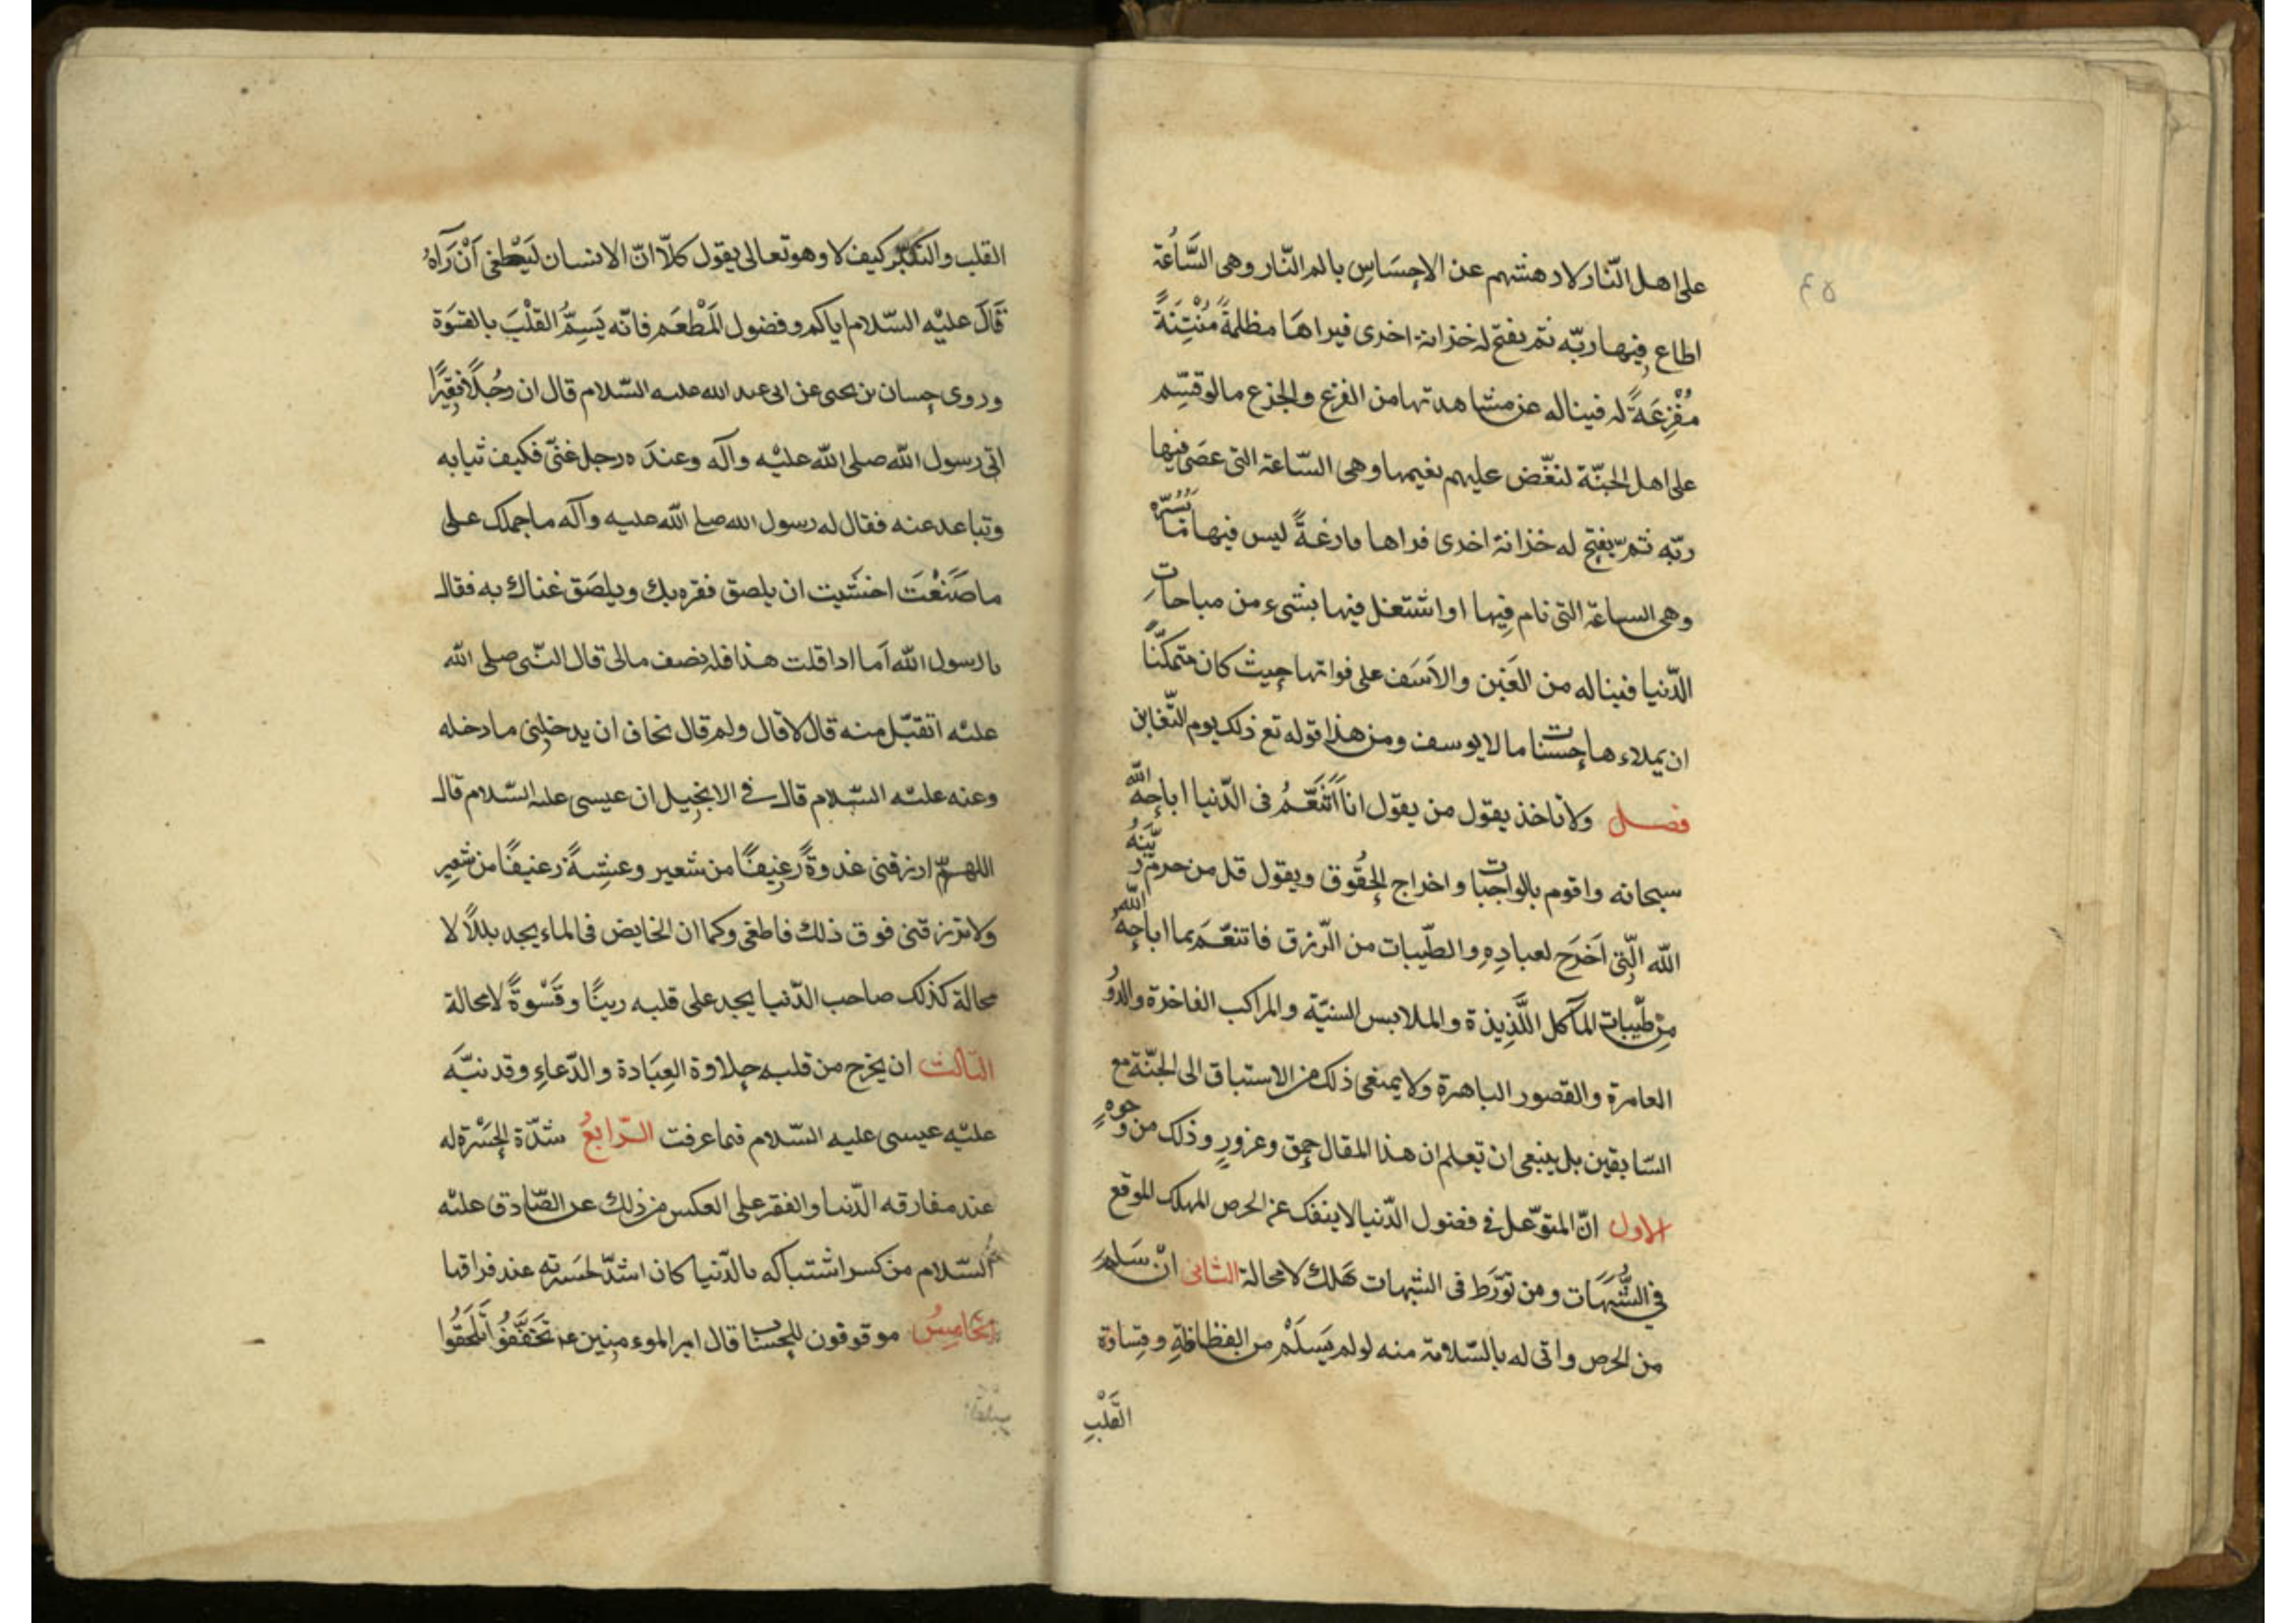 ٤٥
على اهل النّار لادهشتهم عن الاحِسَاسِ بالم النّار وهى السَّاعَة
اطاع فِيها ربّه ثم يفتح له خزانة اخرى فيراهَا مظلمةً مُنْتِنَةً
مُفْزِعَةً له فيناله عن مشاهدتها من الفزع والجزع ما لو قسّم
على اهل الجنّة لنغّض عليهم نعيمها وهى السّاعة التى عصَى فيها
ربّه ثمّ يفتح له خزانة اخرى فراها فارغةً ليس فيها مَا يَسُرّه
وهى الساعة التى نام فِيها او اشتغل فيها بشىء من مباحاتِ
الدّنيا فيناله من الغَبْن والاَسَف على فواتها حيث كان متمكّنًا
ان يملاءها حسنات ما لا يوسف ومن هذا قوله تع ذلك يوم التّغابن
فصل ولا تاخذ بقول من يقول انا اَتَنَعَّمُ فى الدّنيا اباحه الله
سبحانه واقوم بالواجبات واخراج الحُقوق ويقول قل من حرم زِينَةُ
الله الّتى اَخرَج لعبادِهِ والطّيبات من الرّزق فاتنعّمَ بما اباحهُ اللّهُ
مِنْ طيّبات المآكل اللَّذِيذة والملابس السنيّة والمراكب الفاخرة والدوُ
العامرة والقصور الباهرة ولا يمنعى ذلك من الاستباق الى الجنّة مع
السّابقين بل ينبغى ان تعلم ان هذا المقال حمق وغرورٍ وذلك من وُجوهٍ
الاول انّ المتوغّل فى فضول الدّنيا لا ينفك عن الحرص المهلك الموقع
فى الشُّبَهَات ومن تَوَّرَط فى الشّبهات هَلك لا محالة الثانى انْ سَلِمَ
من الحرص واتى له بالسّلامة منه لو لم يَسَلَمْ من الفظاظةِ وقساوة
القَلْبِ
القلب والتكبّر كيف لا وهو تعالى يقول كلّا انّ الانسان لَيَطغى اَنْ رَآهُ
قَالَ عليْه السّلام اياكم وفضول المَطْعَم فانّه يَسِمُّ القلْبَ بالقسَوَة
وروى حسان بن يحيى عن ابى عبد الله عليه السّلام قال ان رَجُلًا فقِيرًا
اتى رسول الله صلى الله عليْه وآله وعندَه رجل غنىّ فكيف ثيابه
وتباعد عنه فقال له رسول الله صلى الله عليه وآله ما حملك على
ما صَنَعْتَ اخشَيت ان يلصق فقره بك ويلصَق غناك به فقال
يا رسول الله اَما اذا قلت هذا فله نصف مالى قال النّبى صلى الله
عليْه اتقبّل منه قال لا قال ولم قال نخاف ان يدخلنى ما دخله
وعنه عليْه السّلام قال فى الانجيل ان عيسى عليه السّلام قال
اللهمّ ارزقنى غدوةً رَغِيفًا من شعير وعشيةً رَغيفًا من شعِير
ولا ترزقنى فوق ذلك فاطغى وكما ان الخايض فى الماء يجد بللًا لا
محالة كذلك صاحب الدّنيا يجد على قلبه رينًا وقَسْوةً لا محالة
الثالث ان يخرج من قلبه حلاوة العِبَادة والدّعاءِ وقد نبّهَ
عليْه عيسى عليه السّلام فيما عرفت الرّابعُ شدّة الحَسْرَة له
عند مفارقه الدّنيا والفقر على العكس من ذلك عن الصّادق عليْه
السّلام من كسر اشتباكه بالدّنيا كان اشدّ لحَسرته عند فراقها
الخَامِسُ موقوفون للحساب قال امير الموءمنين ع تَخَفَّفُوْا تَلحَقُوا